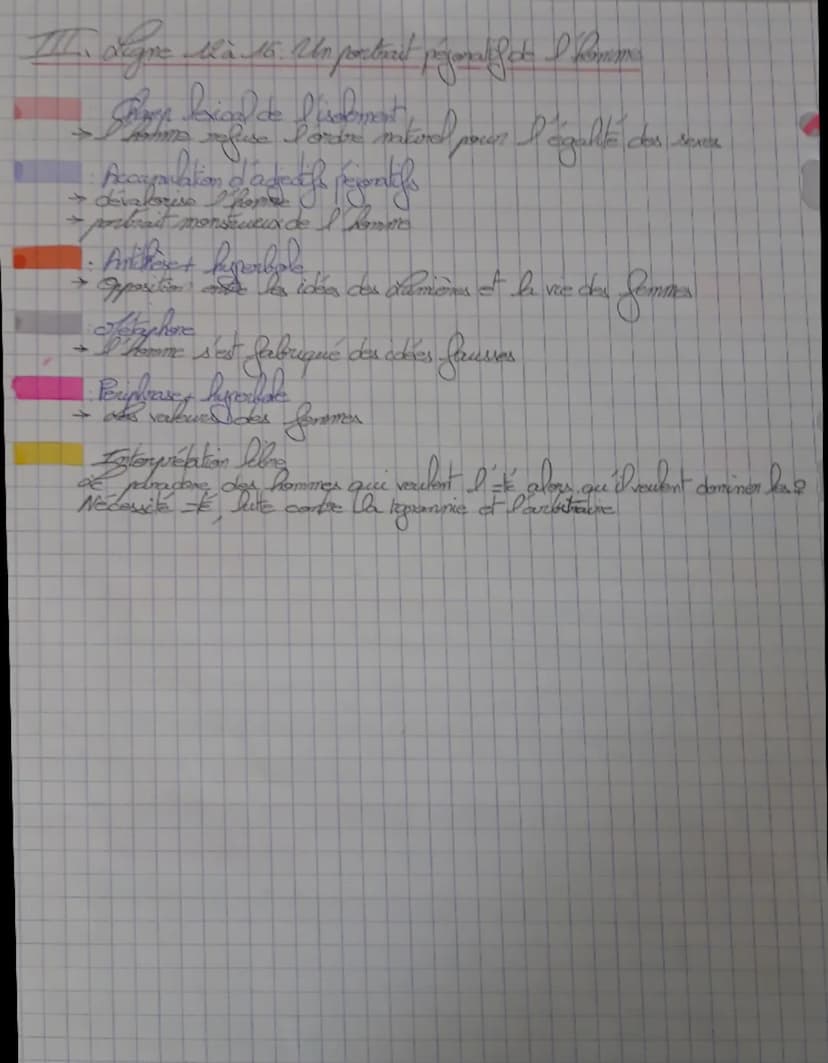 III. Ligne 12 à 16. Un portrait péjoratif de l'homme
Champ lexical de l'isolement
→ l'homme refuse l'ordre naturel pour l'égalité des sexes
: Accumulation d'adjectifs péjoratifs
→ dévalorise l'homme
→ portrait monstrueux de l'homme
: Antithèse + hyperbole
→ opposition les idées des Lumières et la vie des femmes
: Métaphore
→ l'homme s'est fabriqué des idées fausses
: Periphrase + hyperbole
→ des valeurs des femmes
Interprétation libre
paradoxe des hommes qui veulent l'=té alors qu'il veulent dominer les ♀
Nécessité =té, lutte contre la tyrannie et l'arbitraire